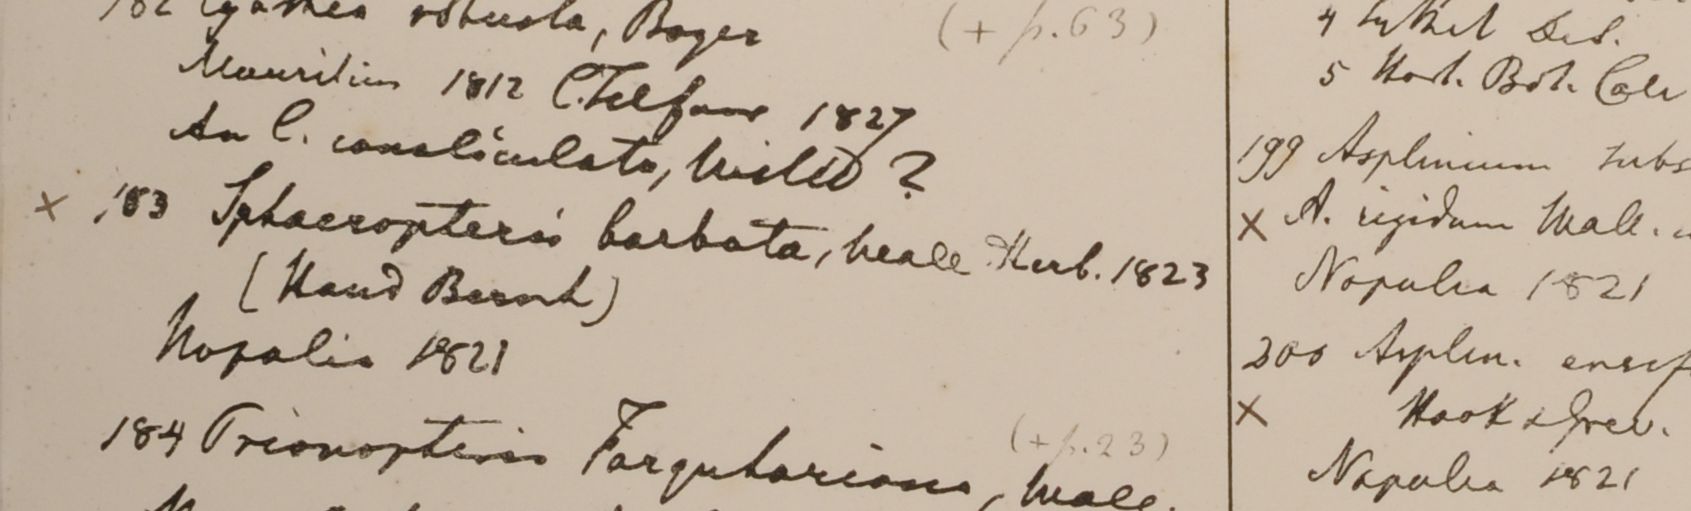 182 Cyathea robusta, Boger (+ p.63)
Mauritius 1812 C. Telfair 1827
An C. canaliculata, Willd ?
x 183 Sphaeropteris barbata, Wall Herb. 1823
(Haud Bernh)
Nopalia 1821
184 Trionopteris Farquhariana, Wall. (+p.23)
4 Sylhet Deb.
5 Hort. Bot. Calc
199 Asplinium subs
x A. rigidum Wall.
Napalia 1821
200 Asplen. ensif
x Hook & Grev.
Napalia 1821